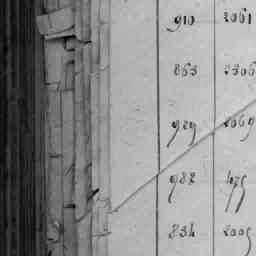 910 2061
863 2306
929 2069
982 475
834 2005